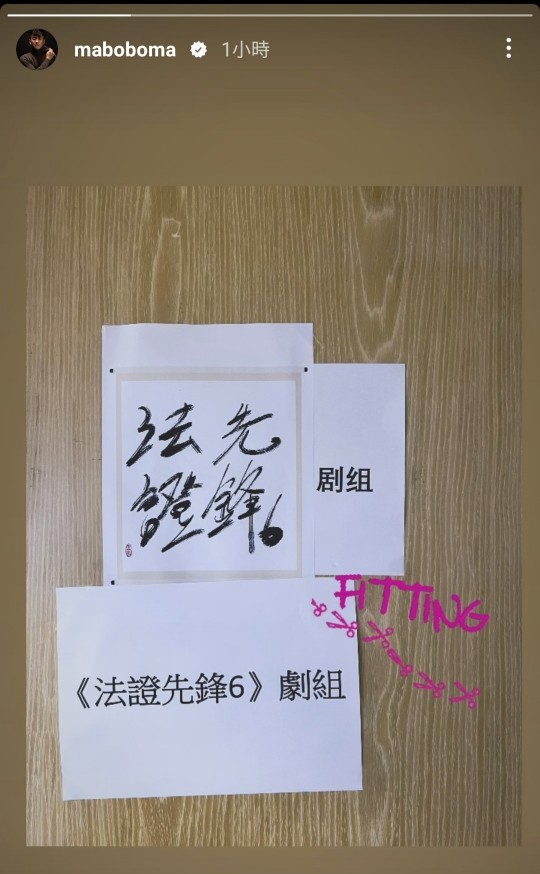 maboboma 1小時
法證先鋒6
剧组
FITTING
《法證先鋒6》劇組